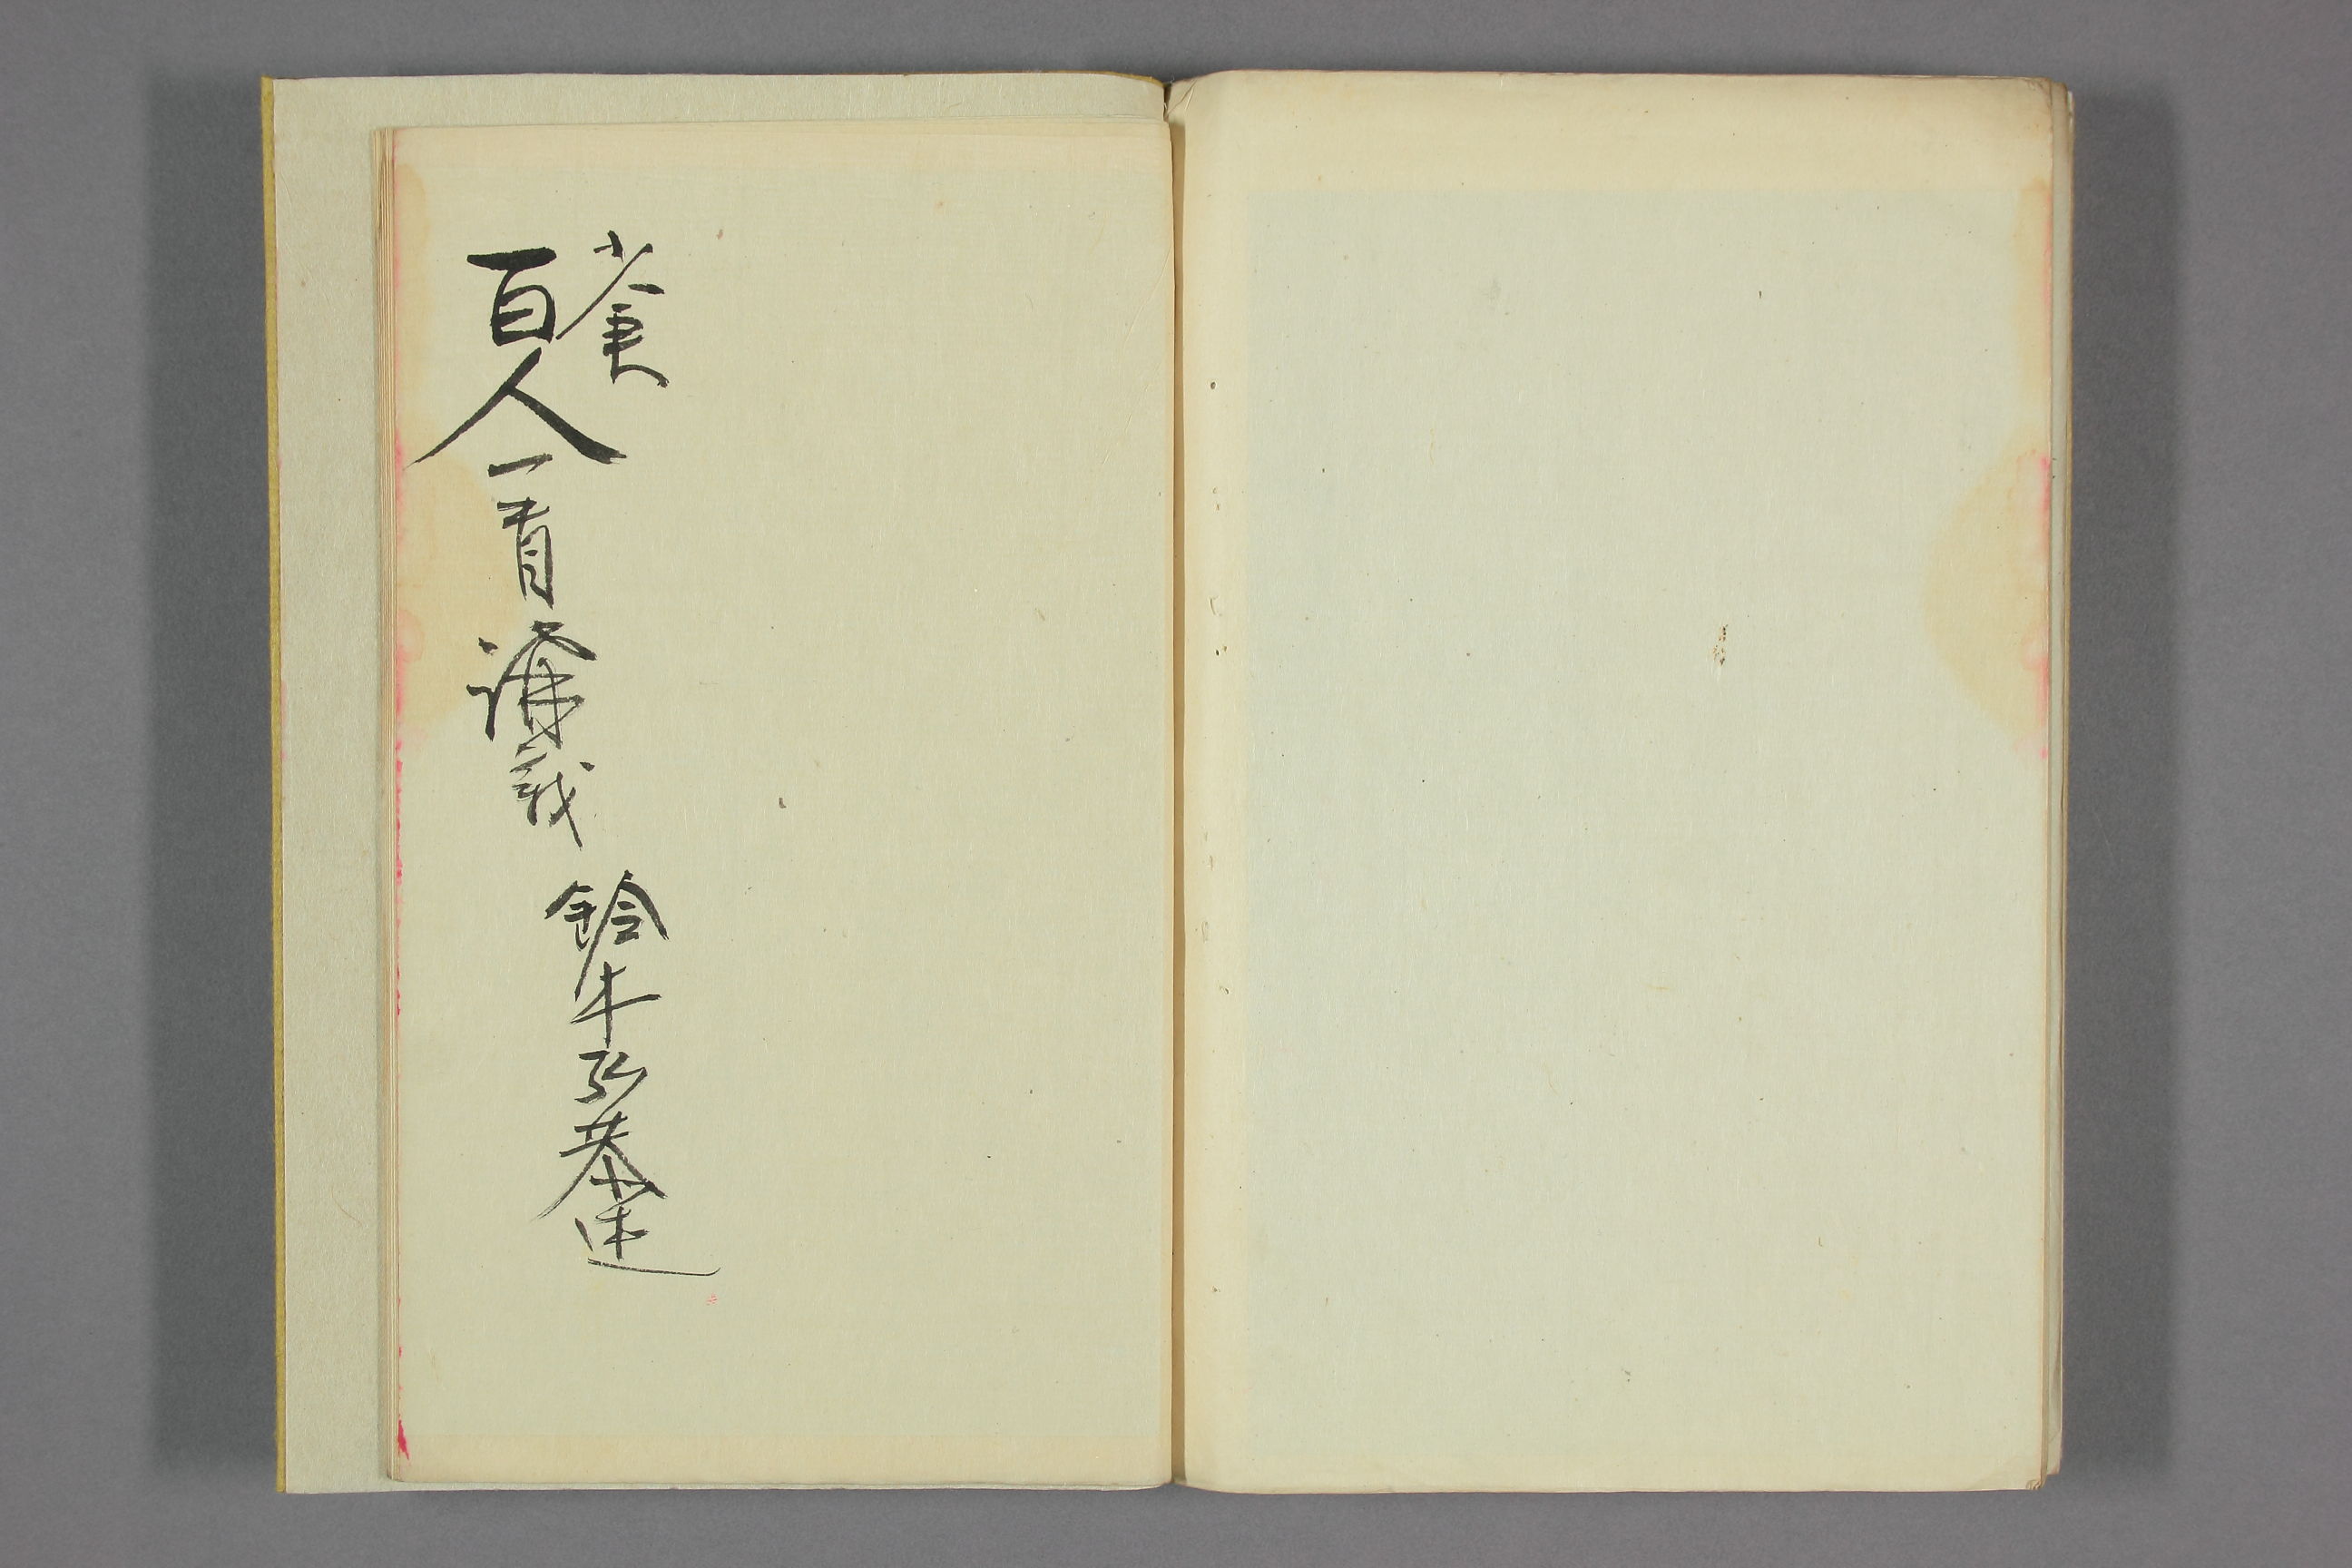 百人一首講義
鈴木弘恭述